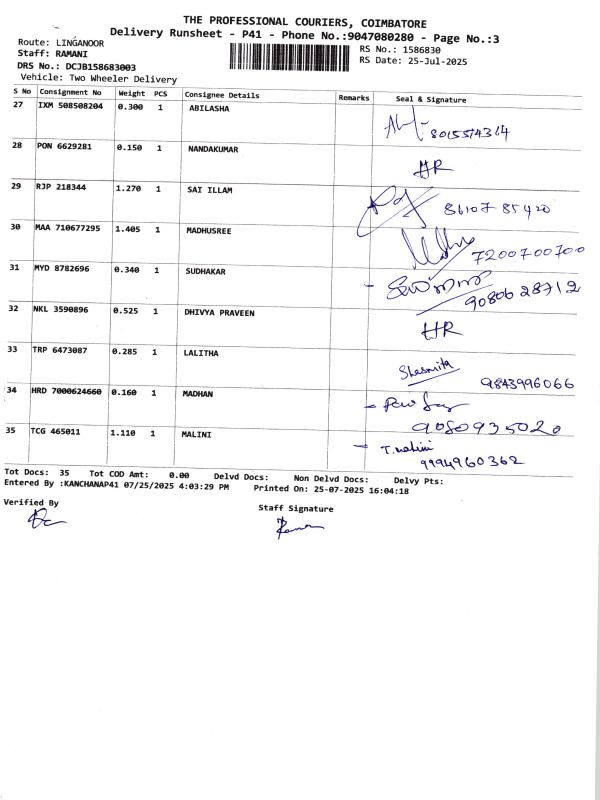 THE PROFESSIONAL COURIERS, COIMBATORE
Delivery Runsheet - P41 - Phone No.:9047080280 - Page No.:3
Route: LINGANOOR
Staff: RAMANI
DRS No.: DCJB158683003
Vehicle: Two Wheeler Delivery
RS No.: 1586830
RS Date: 25-Jul-2025
S No Consignment No Weight PCS Consignee Details Remarks Seal & Signature
27 IXM 508508204 0.300 1 ABILASHA
28 PON 6629281 0.150 1 NANDAKUMAR HR
29 RJP 218344 1.270 1 SAI ILLAM 86107 85420
30 MAA 710677295 1.405 1 MADHUSREE 7200700700
31 MYD 8782696 0.340 1 SUDHAKAR 90806 28712
32 NKL 3590896 0.525 1 DHIVYA PRAVEEN HR
33 TRP 6473087 0.285 1 LALITHA 9843996066
34 HRD 7000624660 0.160 1 MADHAN 9080935020
35 TCG 465011 1.110 1 MALINI T.malini
9994960362
Tot Docs: 35 Tot COD Amt: 0.00 Delvd Docs: Non Delvd Docs: Delvy Pts:
Entered By :KANCHANAP41 07/25/2025 4:03:29 PM Printed On: 25-07-2025 16:04:18
Verified By
Staff Signature